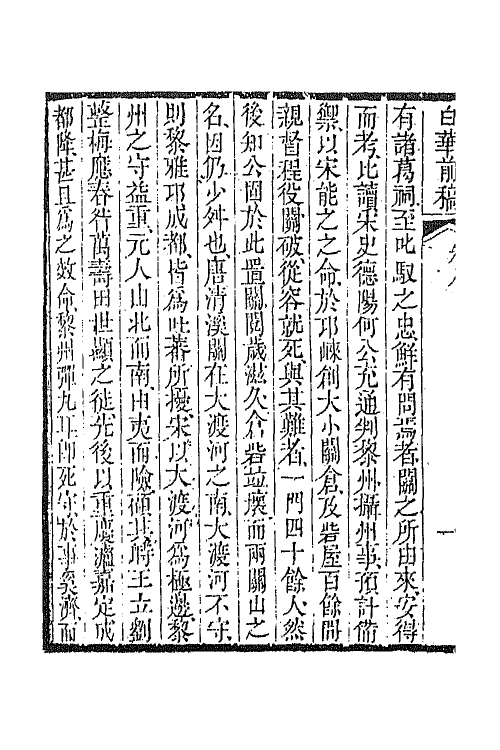 白華前稿
卷八
一
有諸葛祠至叱馭之忠鮮有問焉者關之所由來安得
而考比讀宋史德陽何公充通判黎州攝州事預計備
禦以宋能之之命於邛崍創大小關倉及砦屋百餘間
親督程役關破從容就死與其難者一門四十餘人然
後知公固於此置關閱歲滋久倉砦竝壞而兩關山之
名因仍少舛也唐清溪關在大渡河之南大渡河不守
則黎雅邛成都皆為吐蕃所擾宋以大渡河為極邊黎
州之守益重元人由北而南由夷而險碩其時王立劉
整梅應春昝萬壽田世顯之徒先後以重慶瀘嘉定成
都降甚且為之效命黎州彈九耳即死守於事奚濟而